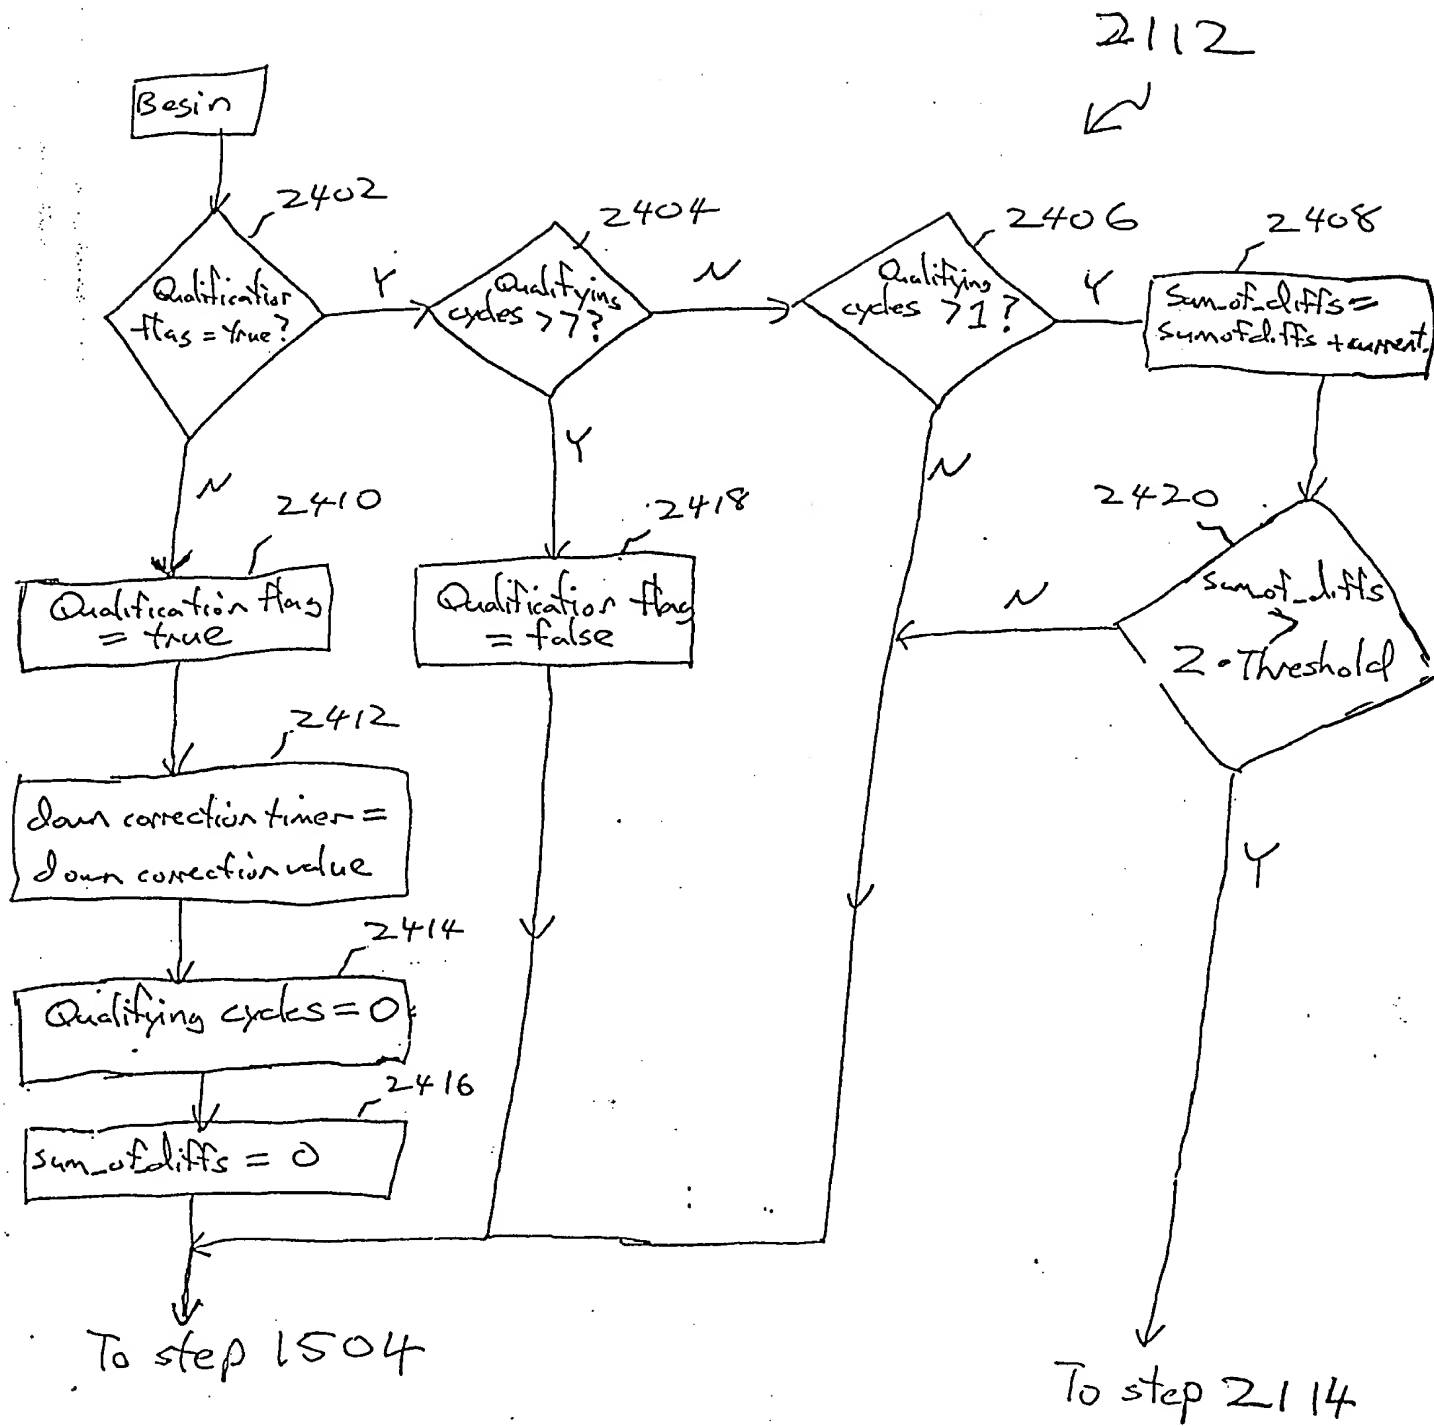 2112
Begin
2402
2404
2406
2408
Qualification
flag = true?
Y
Qualifying
cycles > 7?
N
Qualifying
cycles > 1?
Y
Sum_of_diffs =
sumofdiffs + current.
N
Y
N
2410
2418
2420
Qualification flag
= true
Qualification flag
= false
N
sumof_diffs
>
2 • Threshold
2412
down correction timer =
down correction value
Y
2414
Qualifying cycles = 0
2416
sum_of_diffs = 0
To step 1504
To step 2114